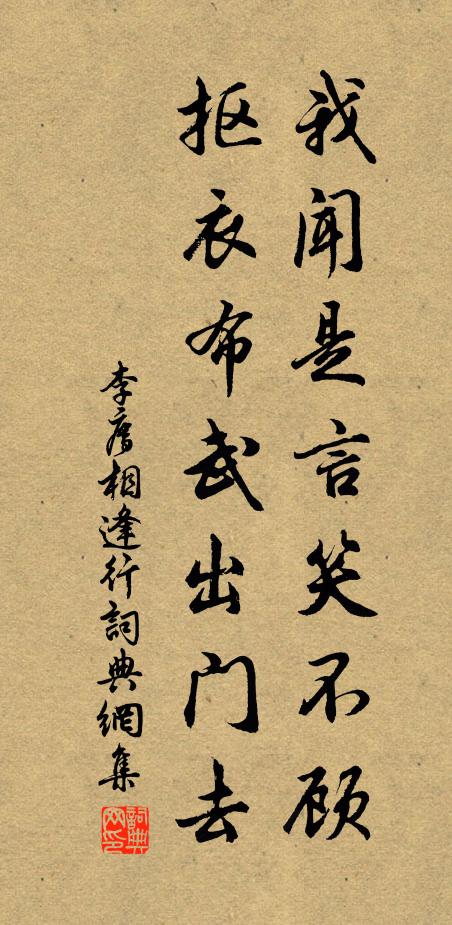 我闻是言笑不顾
抠衣布武出门去
李廌相逢行詞典網集
詞典網印